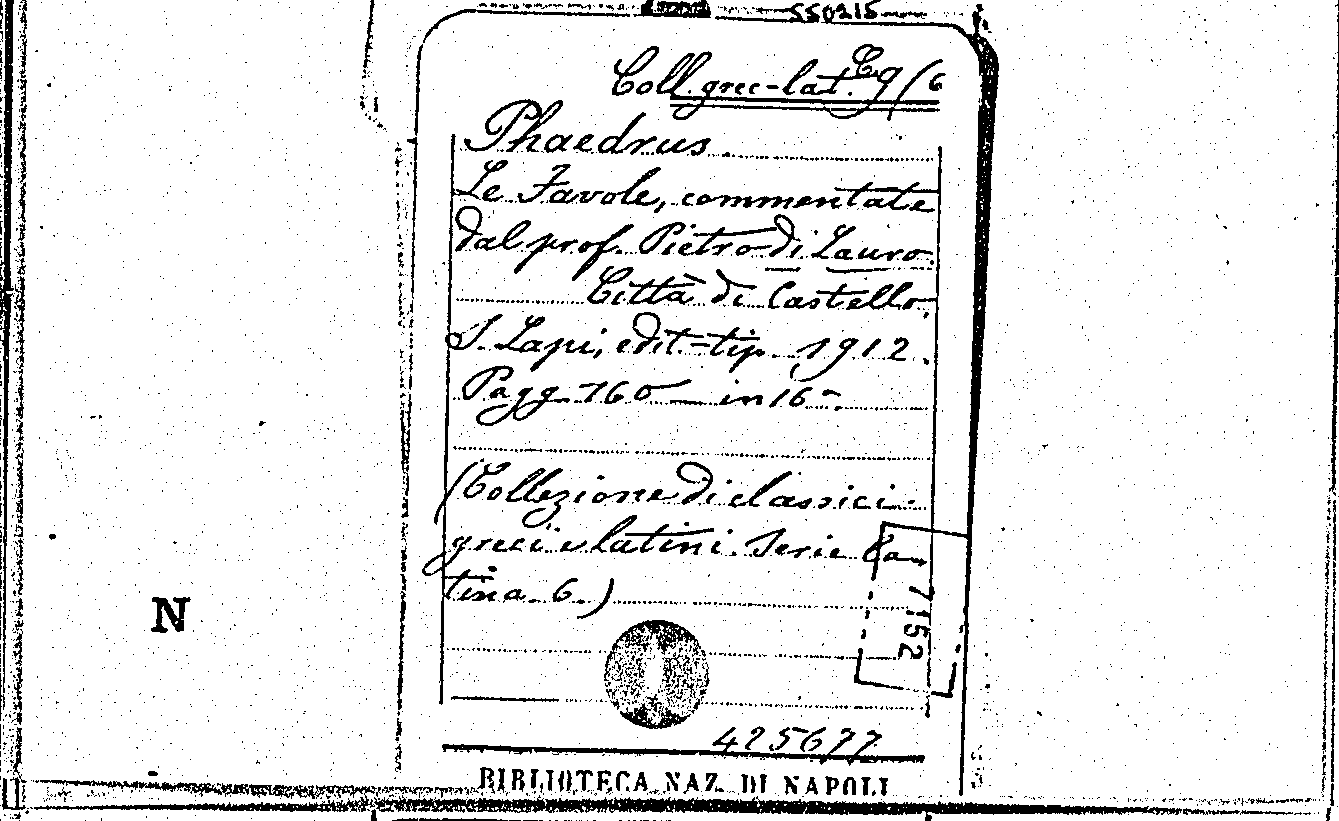 550215
Coll. grec-lat. C 9/6
Phaedrus.
Le Favole, commentate
dal prof. Pietro di Lauro.
Città di Castello,
S. Lapi, edit.-tip. 1912.
Pagg. 160 — in 16º.
(Collezione di classici
greci e latini. Serie La-
tina. 6.)
7152
N
425677
BIBLIOTECA NAZ. DI NAPOLI